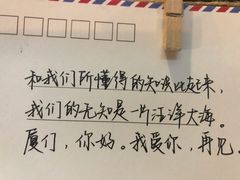 和我们所懂得的知识比起来，
我们的无知是一片汪洋大海。
厦门，你好。我爱你，再见。